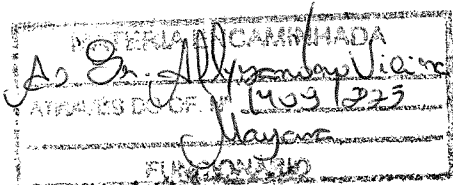 MATÉRIA ENCAMINHADA
Ao Sr. Vieira
ATRAVÉS DO OF. Nº 1409/225
Mayara
FUNCIONÁRIO